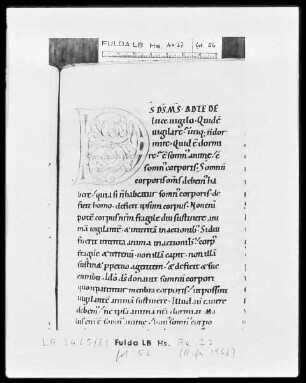 FULDA LB Hs. Aa 27 fol. 56
D S DS MS. AD TE DE
luce uigilo. Quid ē
uigilare? utiq; n̄ dor
mire. Quid ē dormi
re? ē somn' anime, ē
somn' corporis. Somnū
corporis om̄s debem' ha
bere, quia si n̄ habeatur somn' corporis, de
ficit homo, deficit ipsum corpus. Non eni
potē corpus nr̄m fragile diu sustinere ani
mā uigilantē & intentā in actionib;. Si diu
fuerit intenta anima in actionib;, corp'
fragile & terrenū non illā capit, non illā
sustin& ppetuo agentem, & deficit & suc
cumbit. Ideo ds̄ donauit somnū corpori
quo reparentur membra corporis, ut possint
uigilantē animā sustinere. Illud aut cauere
debem', ne ipsa anima nr̄a dormiat. Ma
lus eni ē somn' anime, bon' somn' corpo
LA 2465/31 Fulda LB Hs. Aa 27
fol. 56